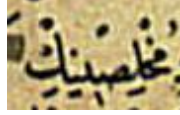 مُخْلِصِينِكْ